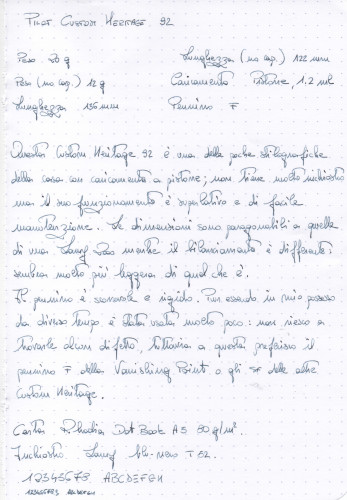 Pilot Custom Heritage 92
Peso 20 g Lunghezza (no cap.) 122 mm
Peso (no cap.) 12 g Caricamento Pistone, 1.2 ml
Lunghezza 136 mm Pennino F
Questa Custom Heritage 92 è una delle poche stilografiche
della casa con caricamento a pistone; non tiene molto inchiostro
ma il suo funzionamento è superlativo e di facile
manutenzione. Le dimensioni sono paragonabili a quelle
di una Lamy 2000 mentre il bilanciamento è differente:
sembra molto più leggera di quel che è.
Il pennino è scorrevole e rigido. Pur essendo in mio possesso
da diverso tempo è stata usata molto poco: non riesco a
trovarle alcun difetto, tuttavia a questa preferisco il
pennino F della Vanishing Point o gli SF delle altre
Custom Heritage.
Carta Rhodia Dot Book A5 80 g/m².
Inchiostro Lamy blu-nero T 52.
12345678 ABCDEFGH